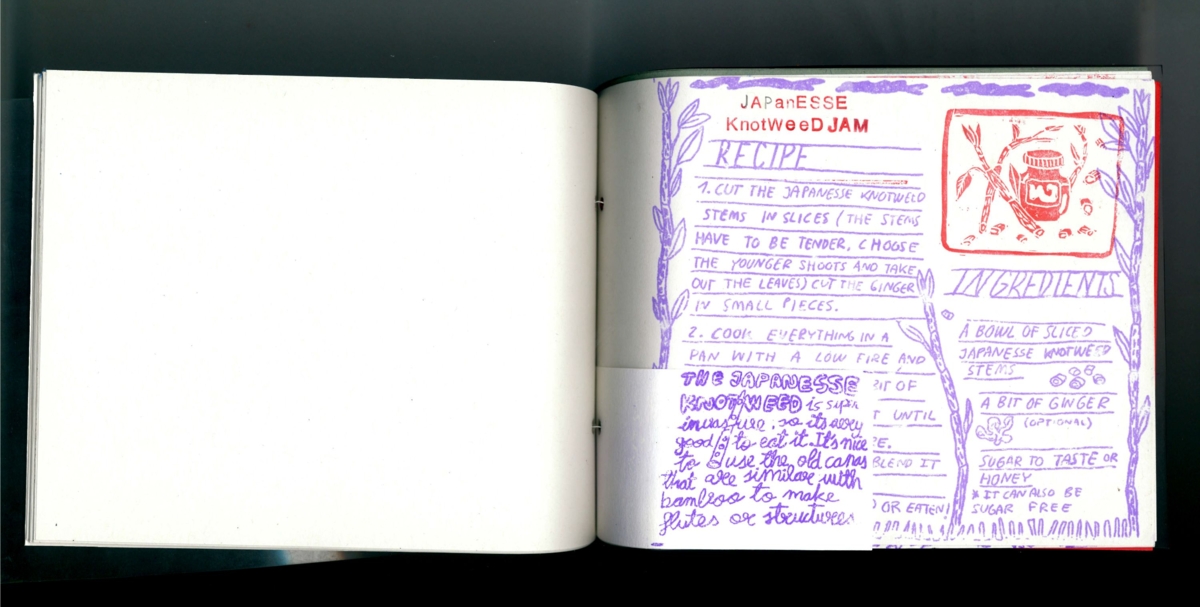 JAPanESSE
KnotWeeD JAM
RECIPE
1. CUT THE JAPANESSE KNOTWEED
STEMS IN SLICES (THE STEMS
HAVE TO BE TENDER, CHOOSE
THE YOUNGER SHOOTS AND TAKE
OUT THE LEAVES) CUT THE GINGER
IN SMALL PIECES.
2. COOK EVERYTHING IN A
PAN WITH A LOW FIRE AND
BIT OF
UNTIL
BLEND IT
OR EATEN!
THE JAPANESSE
KNOTWEED is super
invasive, so it's very
good to eat it. It's nice
to use the old canas
that are similar with
bamboo to make
flutes or structures
INGREDIENTS
A BOWL OF SLICED
JAPANESSE KNOTWEED
STEMS
A BIT OF GINGER
(OPTIONAL)
SUGAR TO TASTE OR
HONEY
* IT CAN ALSO BE
SUGAR FREE